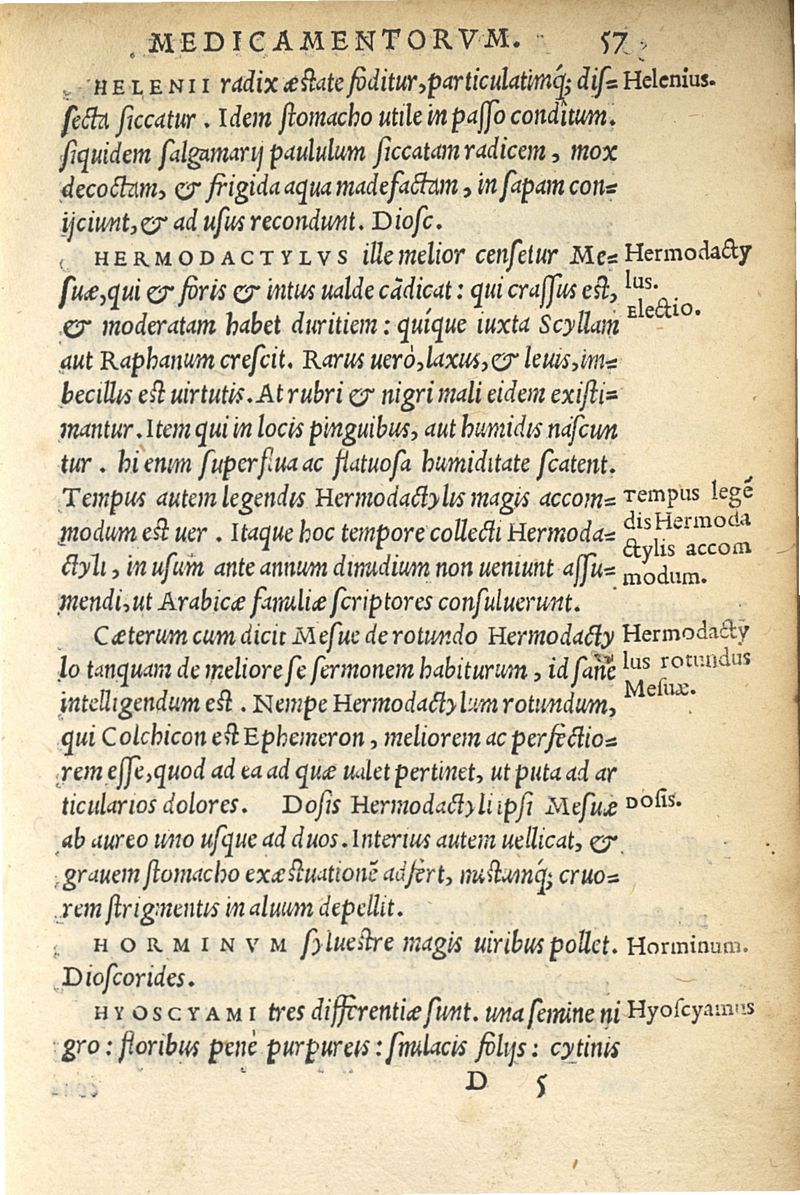 MEDICAMENTORVM. 57
HELENII radix æstate foditur, particulatimq́; dis= Helenius.
secta siccatur. Idem stomacho utile in passo conditum.
siquidem salgamarij paululum siccatam radicem, mox
decoctam, & frigida aqua madefactam, in sapam con=
ijciunt, & ad usus recondunt. Diosc.
HERMODACTYLVS ille melior censetur Me= Hermodacty
suæ, qui & foris & intus ualde cādicat: qui crassus est, lus.
& moderatam habet duritiem: quíque iuxta Scyllam Electio.
aut Raphanum crescit. Rarus uerò, laxus, & leuis, im=
becillis est uirtutis. At rubri & nigri mali eidem existi=
mantur. Item qui in locis pinguibus, aut humidis nascun
tur. hi enim superflua ac flatuosa humiditate scatent.
Tempus autem legendis Hermodactylis magis accom= Tempus legē
modum est uer. Itaque hoc tempore collecti Hermoda= dis Hermoda
ctyli, in usum ante annum dimidium non ueniunt assu= ctylis accom
mendi, ut Arabicæ familiæ scriptores consuluerunt. modum.
Cæterum cum dicit Mesue de rotundo Hermodacty Hermodacty
lo tanquam de meliore se sermonem habiturum, id sanè lus rotundus
intelligendum est. Nempe Hermodactylum rotundum, Mesuæ.
qui Colchicon est Ephemeron, meliorem ac perfectio=
rem esse, quod ad ea ad quæ ualet pertinet, ut puta ad ar
ticularios dolores. Dosis Hermodactyli ipsi Mesuæ Dosis.
ab aureo uno usque ad duos. Interius autem uellicat, &
grauem stomacho exæstuationē adfert, mistamq́; cruo=
rem strigmentis in aluum depellit.
HORMINVM syluestre magis uiribus pollet. Horminum.
Dioscorides.
HYOSCYAMI tres differentiæ sunt. una semine ni Hyoscyamus
gro: floribus penè purpureis: smilacis folijs: cytinis
D 5